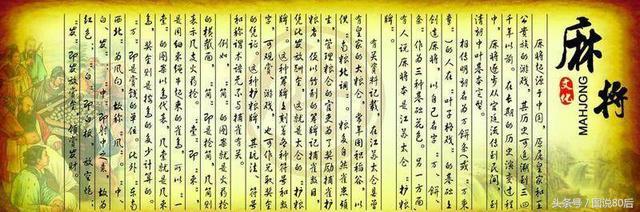 麻将
文化
MAHJONG
麻将起源于中国，原属皇家和王
公贵族的游戏，其历史可追溯到三四
千年以前。在长期的历史演变过程
中，麻将逐步从宫廷流传到民间，到
清朝中叶基本定型。
相传明朝名为万饼条（或万秉
章）的人在“叶子格戏”的基础上
创造麻将，以自己名字“万、饼、
条”作为三种基础花色。另方面
有人说麻将本是江苏太仓“护粮
牌”。
有关资料记载，在江苏太仓县曾
有皇家的大粮仓，常年囤积稻谷，以
供“南粮北调”。粮多自然雀患频
生，管理粮仓的官吏为了奖励捕雀护
粮者，便以竹制的筹牌记捕雀数目，
凭此发放酬金，这就是太仓的“护粮
牌”。这种筹牌上刻着各种符号和数
字，既可观赏，又可游戏，也可作兑取奖金
的凭证。这种护粮牌，其玩法、符号
和称谓术语无不与捕雀有关。
例如，“筒”的图案就是火药枪
的横截面，“筒”即是枪筒，几筒则
表示几支火药枪。“索”即“束”，
是用细束绳串起来的雀鸟，所以“一
索”的图案以鸟代表，几索就是几束鸟，
奖金则是按鸟的多少计算的。
“万”即是赏钱的单位，此外“东南
西北”为风向，故称“风”，
“中”即射中之意，故为
红色，“白”即白板，放空炮，
“发”即发赏金，领赏发财。
头条号 / 图说80后